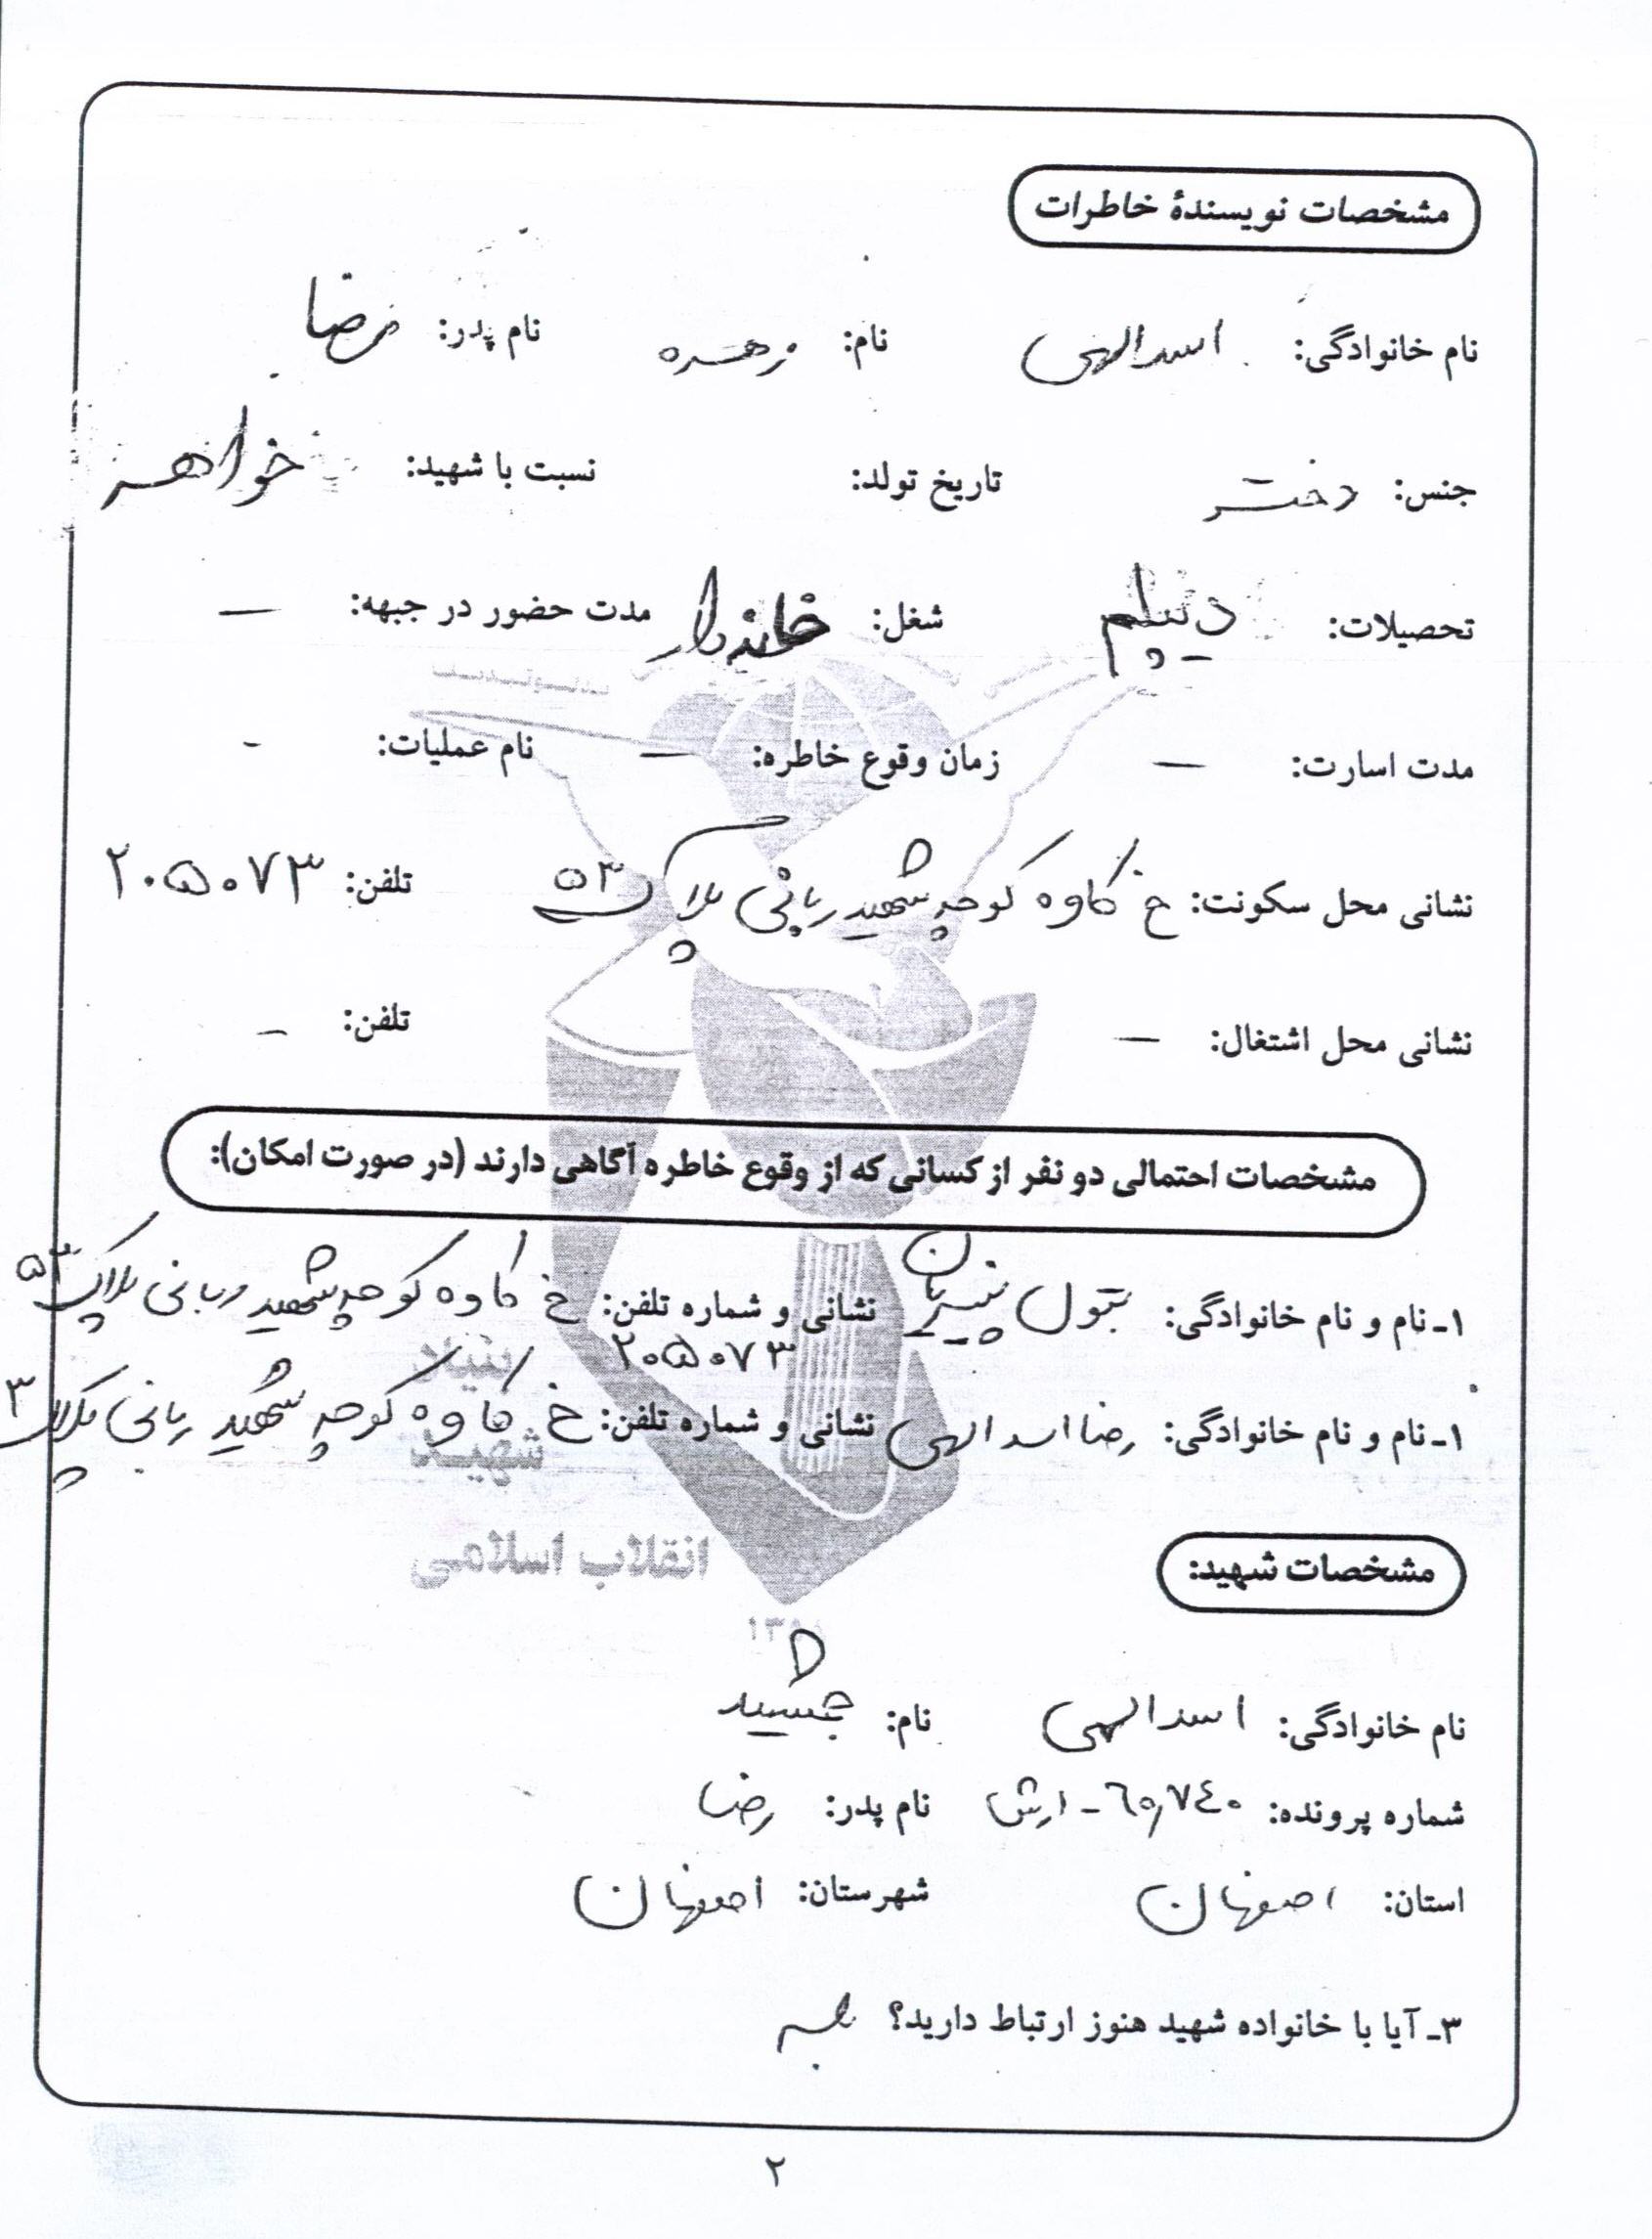 مشخصات نویسندهٔ خاطرات
نام خانوادگی: اسدالهی نام: زهره نام پدر: رضا
جنس: دختر تاریخ تولد: نسبت با شهید: خواهر
تحصیلات: دیپلم شغل: خانه‌دار مدت حضور در جبهه: —
مدت اسارت: — زمان وقوع خاطره: — نام عملیات: -
نشانی محل سکونت: خ کاوه کوچه شهید ربانی پلاک ۵۳ تلفن: ۲۰۵۰۷۳
نشانی محل اشتغال: — تلفن: -
مشخصات احتمالی دو نفر از کسانی که از وقوع خاطره آگاهی دارند (در صورت امکان):
۱ـ نام و نام خانوادگی: بتول نشانی و شماره تلفن: خ کاوه کوچه شهید ربانی پلاک ۵۳
۲۰۵۰۷۳
۱ـ نام و نام خانوادگی: رضا اسدالهی نشانی و شماره تلفن: خ کاوه کوچه شهید ربانی پلاک ۳
بنیاد
شهید
انقلاب اسلامی
مشخصات شهید:
نام خانوادگی: اسدالهی نام: جمشید
شماره پرونده: ۶۰٫۷۴۰ - ارتش نام پدر: رضا
استان: اصفهان شهرستان: اصفهان
۳ـ آیا با خانواده شهید هنوز ارتباط دارید؟ بله
۲